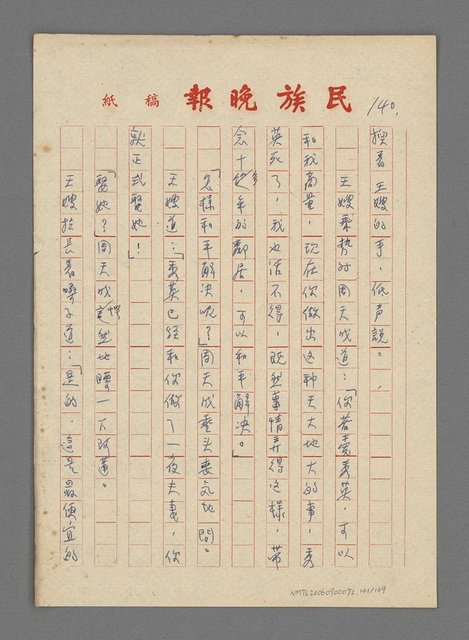 民族晚報 稿紙
140.
捏着王嫂的手,低声說。
王嫂乘勢对周天成道:「你若愛秀英,可以
和我商量,现在你做出这种天大地大的事,秀
英死了,我也活不得,既然事情弄得这樣,带
念十多年的鄰居,可以和平解决。」
「怎樣和平解决呢?」周天成垂头喪气地問。
王嫂道:「秀英已經和你做了一夜夫妻,你
就正式娶她!」
「娶她?」周天成愕然地瞟一下阿蓮。
王嫂拉長着嗓子道:「是的,這是最便宜的
NMTL20060900072 141/169